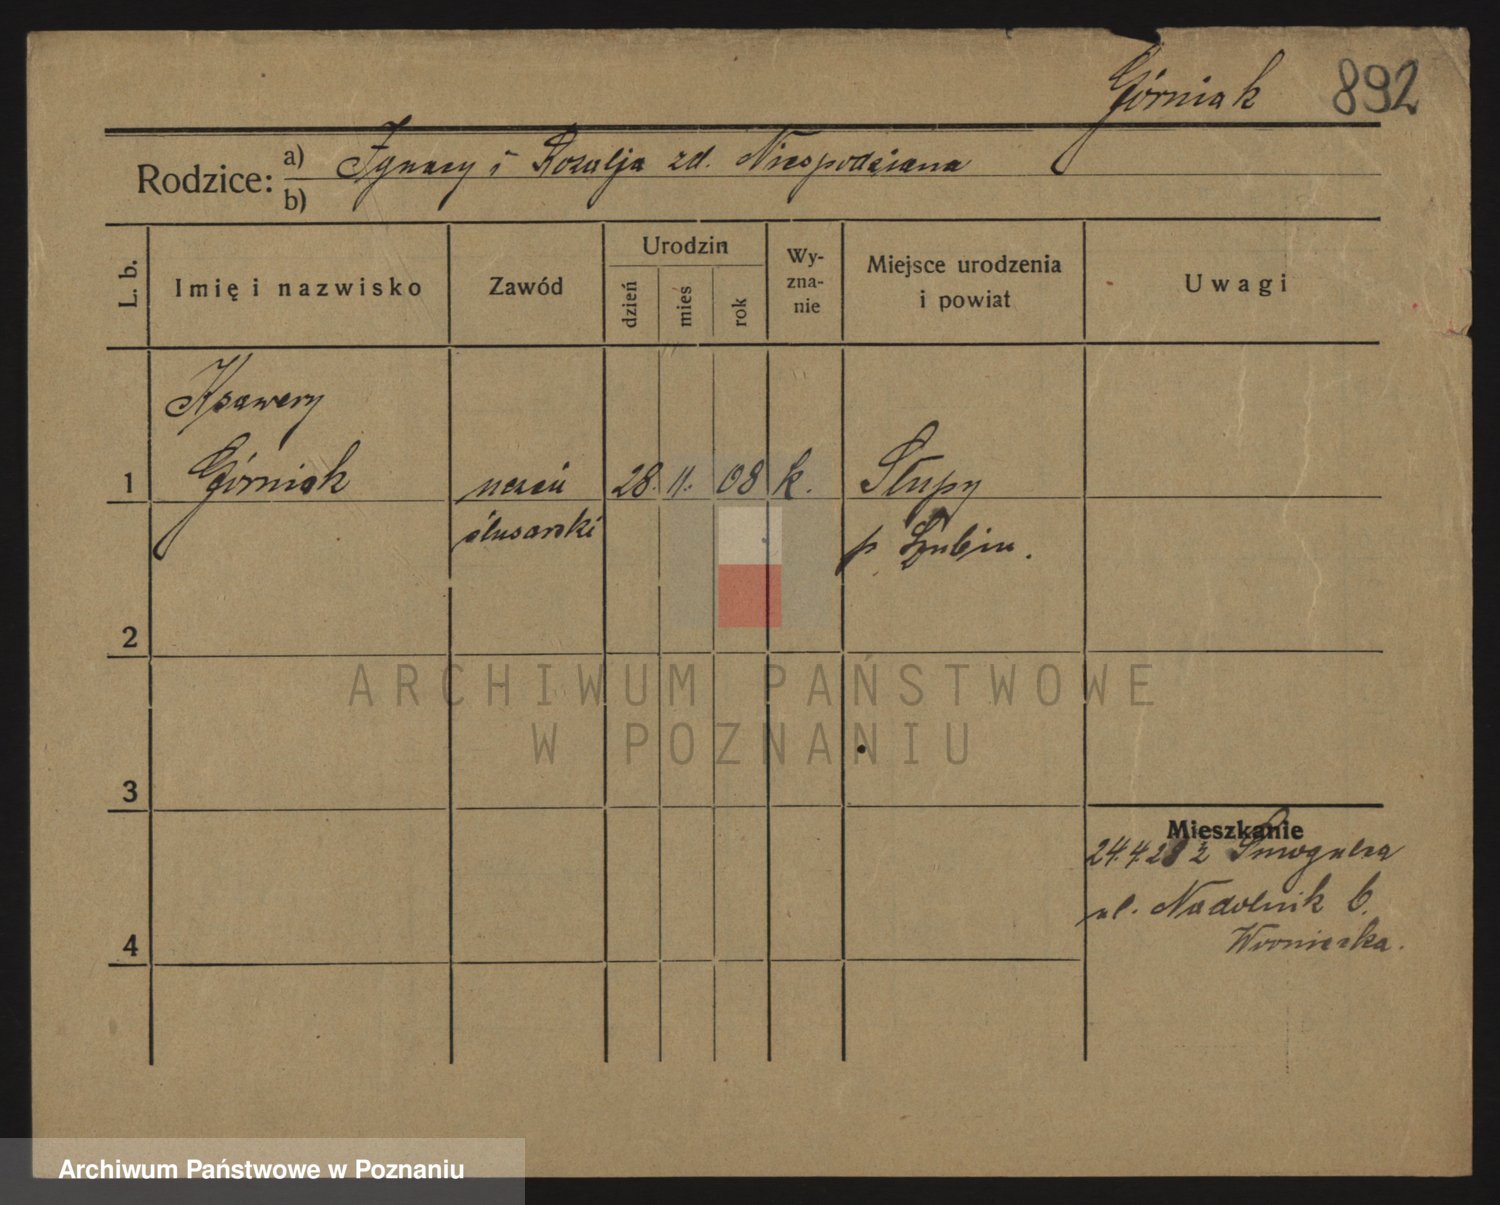 Górniak 892
Rodzice: a) Ignacy i Rozalja zd. Niespodziana
b)
L. b.
Imię i nazwisko
Zawód
Urodzin
dzień
mieś
rok
Wy-
zna-
nie
Miejsce urodzenia
i powiat
Uwagi
Ksawery
1 Górniak uczeń 28. 11. 08 k. Słupy
ślusarski p. Szubin.
2
ARCHIWUM PAŃSTWOWE
W POZNANIU
3
Mieszkanie
24.4.28 z Smogulca
ul. Nadolnik 6.
4
Archiwum Państwowe w Poznaniu